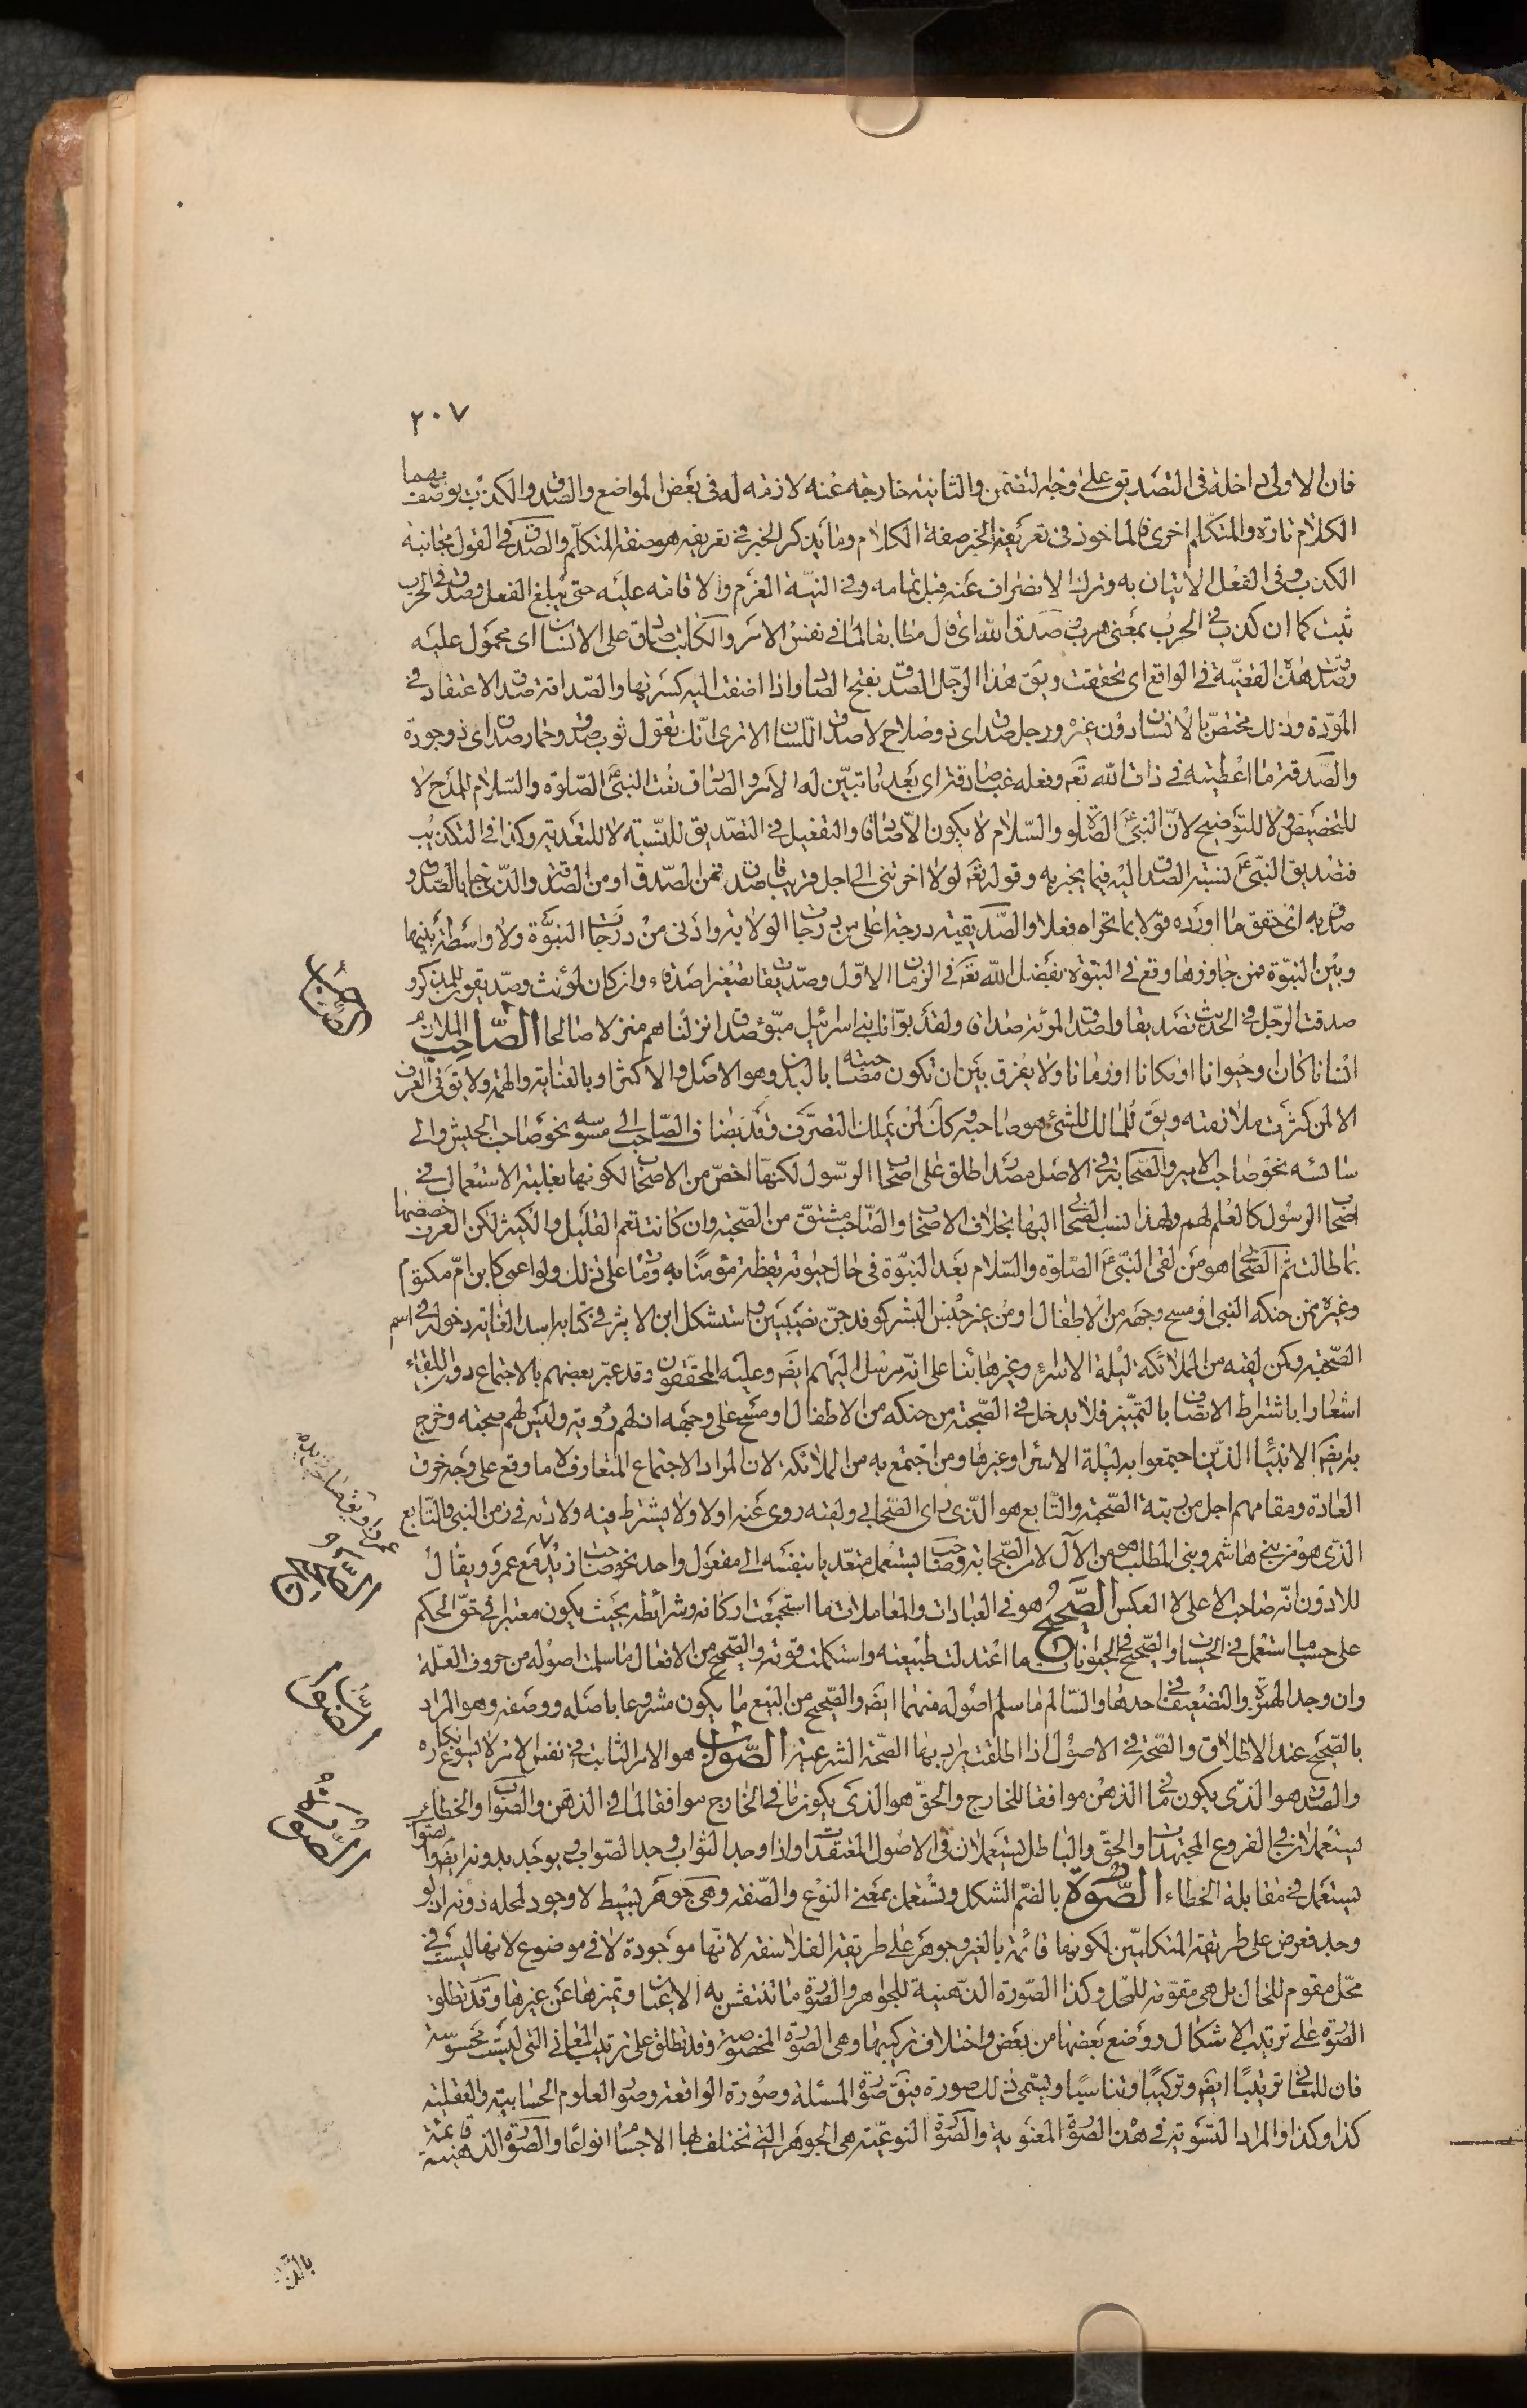 ٢٠٧
فان الاولى داخلة فى التصديق على وجه التضمن والثانية خارجة عنه لازمة له فى بعض المواضع والصدق والكذب يوصف بهما
الكلام تارة والمتكلم اخرى فالماخوذ فى تعريف الخبر صفة الكلام وما يذكر الخبر فى تعريفه هو صفة المتكلم والصدق فى القول مجانبة
الكذب وفى الفعل الاتيان به وترك الانصراف عنه قبل تمامه وفى النية العزم والاقامة عليه حتى يبلغ الفعل وصدق فى الحرب
ثبت كما ان كذب فى الحرب بمعنى هرب وصدق الله اى قال مطابقا لما فى نفس الامر والكاتب صادق على الانسان اى محمول عليه
وصدقت هذه القضية فى الواقع اى تحققت ويق هذا الرجل الصدق بفتح الصاد واذا اضفت اليه كسرتها والصداقة صدق الاعتقاد فى
المودة وذلك مختص بالانسان دون غيره ورجل صدق اى ذو صلاح لا صدق اللسان الا ترى انك تقول ثوب صدق وخمار صدق اى ذو جودة
والصدقة ما اعطيته فى ذات الله تعه وفعله غب صادقة اى بعد ما تبين له الامر والصادق نعت النبى ع الصلوة والسلام للمدح لا
للتخصيص ولا للتوضيح لان النبى ع الصلوة والسلام لا يكون الا صادقا والتفعيل فى التصديق للنسبة لا للتعدية وكذا فى التكذيب
فتصديق النبى ع نسبة الصدق اليه فيما يخبر به وقوله تعه لولا اخرتنى الى اجل قريب فاصدق فمن الصدق او من الصدقة والذى جاء بالصدق و
صدق به اى حقق ما اورده قولا بما تحراه فعلا والصديقية درجة اعلى من درجات الولاية وادنى من درجات النبوة ولا واسطة بينها
وبين النبوة فمن جاوزها وقع فى النبوة بفضل الله تعه فى الزمان الاول وصديقا تصغير اصدقاء وان كان لمؤنث وصديقون للمذكر و
صدقت الرجل فى الحديث تصديقا واصدق المرأة صداقا ولقد بوأنا بنى اسرائيل مبوأ صدق انزلناهم منزلا صالحا الصاحب الملازم
انسانا كان او حيوانا او مكانا او زمانا ولا يفرق بين ان تكون مصاحبته بالبدن وهو الاصل والاكثر او بالعناية والهمة ولا يق فى العرف
الا لمن كثرت ملازمته ويق للمالك للشئ هو صاحبه وكذا لمن يملك التصرف وقد يضاف الصاحب الى مسوسه نحو صاحب الجيش والى
سائسه نحو صاحب الامير والصحابة فى الاصل مصدر اطلق على اصحاب الرسول لكنها اخص من الاصحاب لكونها بغلبة الاستعمال فى
اصحاب الرسول كالعلم لهم ولهذا نسب الصحابى اليها بخلاف الاصحاب والصاحب مشتق من الصحبة وان كانت تعم القليل والكثير لكن العرف خصصها
بما طالت ثم الصحابى هو من لقى النبى ع الصلوة والسلام بعد النبوة فى حال حيوته يقظة مؤمنا به ومات على ذلك ولو اعمى كابن ام مكتوم
وغيره ممن حنكه النبى او مسح وجهه من الاطفال او من غير جنس البشر كوفد جن نصيبين واستشكل ابن الاثير فى كتابه اسد الغابة دخوله فى اسم
الصحبة ومن لقيه من الملائكة ليلة الاسراء وغيرها بناء على انه مرسل اليهم ايضه وعليه المحققون وقد عبر بعضهم بالاجتماع دون اللقاء
اشعارا باشتراط الاتصاف بالتمييز فلا يدخل فى الصحبة من حنكه من الاطفال او مسح على وجهه اذ لهم رؤية وليس لهم صحبة وخرج
به ايضه الانبياء الذين اجتمعوا به ليلة الاسرا وغيرها ومن اجتمع به من الملائكة لان المراد الاجتماع المتعارف لا ما وقع على وجه خرق
العادة ومقامهم اجل من رتبة الصحبة والتابع هو الذى رأى الصحابى ولقيه روى عنه او لا ولا يشترط فيه ولادته فى زمن النبى فالتابع
الذى هو من بنى هاشم وبنى المطلب هو من الآل لا من الصحابة وصاحب يستعمل متعديا بنفسه الى مفعول واحد نحو صاحب زيد مع عمرو ويقال
للادون انه صاحب الاعلى لا العكس الصحيح هو فى العبادات والمعاملات ما استجمعت اركانه وشرائطه بحيث يكون معتبرا فى حق الحكم
على حسب ما استعمل فى الحسيات والصحيح فى الحيوانات ما اعتدلت طبيعته واستكملت قوته والصحيح من الافعال ما سلمت اصوله من حروف العلة
وان وجد الهمزة والتضعيف فى احدها والسالم ما سلم اصوله منهما ايضه والصحيح من البيع ما يكون مشروعا باصله ووصفه وهو المراد
بالصحيح عند الاطلاق والصحة فى الاصول اذا اطلقت يراد بها الصحة الشرعية الصواب هو الامر الثابت فى نفس الامر لا يسوغ انكاره
والصدق هو الذى يكون ما فى الذهن موافقا للخارج والحق هو الذى يكون ما فى الخارج موافقا لما فى الذهن والصواب والخطاء
يستعملان فى الفروع المجتهدات والحق والباطل يستعملان فى الاصول المعتقدات واذا وجد الثواب وجد الصواب وقد يوجد بدونه ايضه والصواب
يستعمل فى مقابلة الخطاء الصورة بالضم الشكل وتستعمل بمعنى النوع والصفة وهى جوهر بسيط لا وجود لمحله دونه اذ لو
وجد فعرض على طريقة المتكلمين لكونها قائمة بالغير وجوهر على طريقة الفلاسفة لانها موجودة لا فى موضوع لانها ليست فى
محل مقوم للحال بل هى مقومة للمحل وكذا الصورة الذهنية للجواهر والصورة ما تنتقش به الاعيان وتميزها عن غيرها وقد تطلق
الصورة على ترتيب الاشكال ووضع بعضها من بعض واختلاف تركيبها وهى الصورة المخصوصة وقد تطلق على ترتيب المعانى التى ليست محسوسة
فان للمعانى ترتيبا ايضه وتركيبا وتناسبا ويسمى ذلك صورة فيق صورة المسئلة وصورة الواقعة وصورة العلوم الحسابية والعقلية
كذا وكذا والمراد التسوية فى هذه الصورة المعنوية والصورة النوعية هى الجوهر التى تختلف بها الاجسام انواعا والصورة الذهنية قائمة
الصاحب
الصحيح
الصواب
الصورة